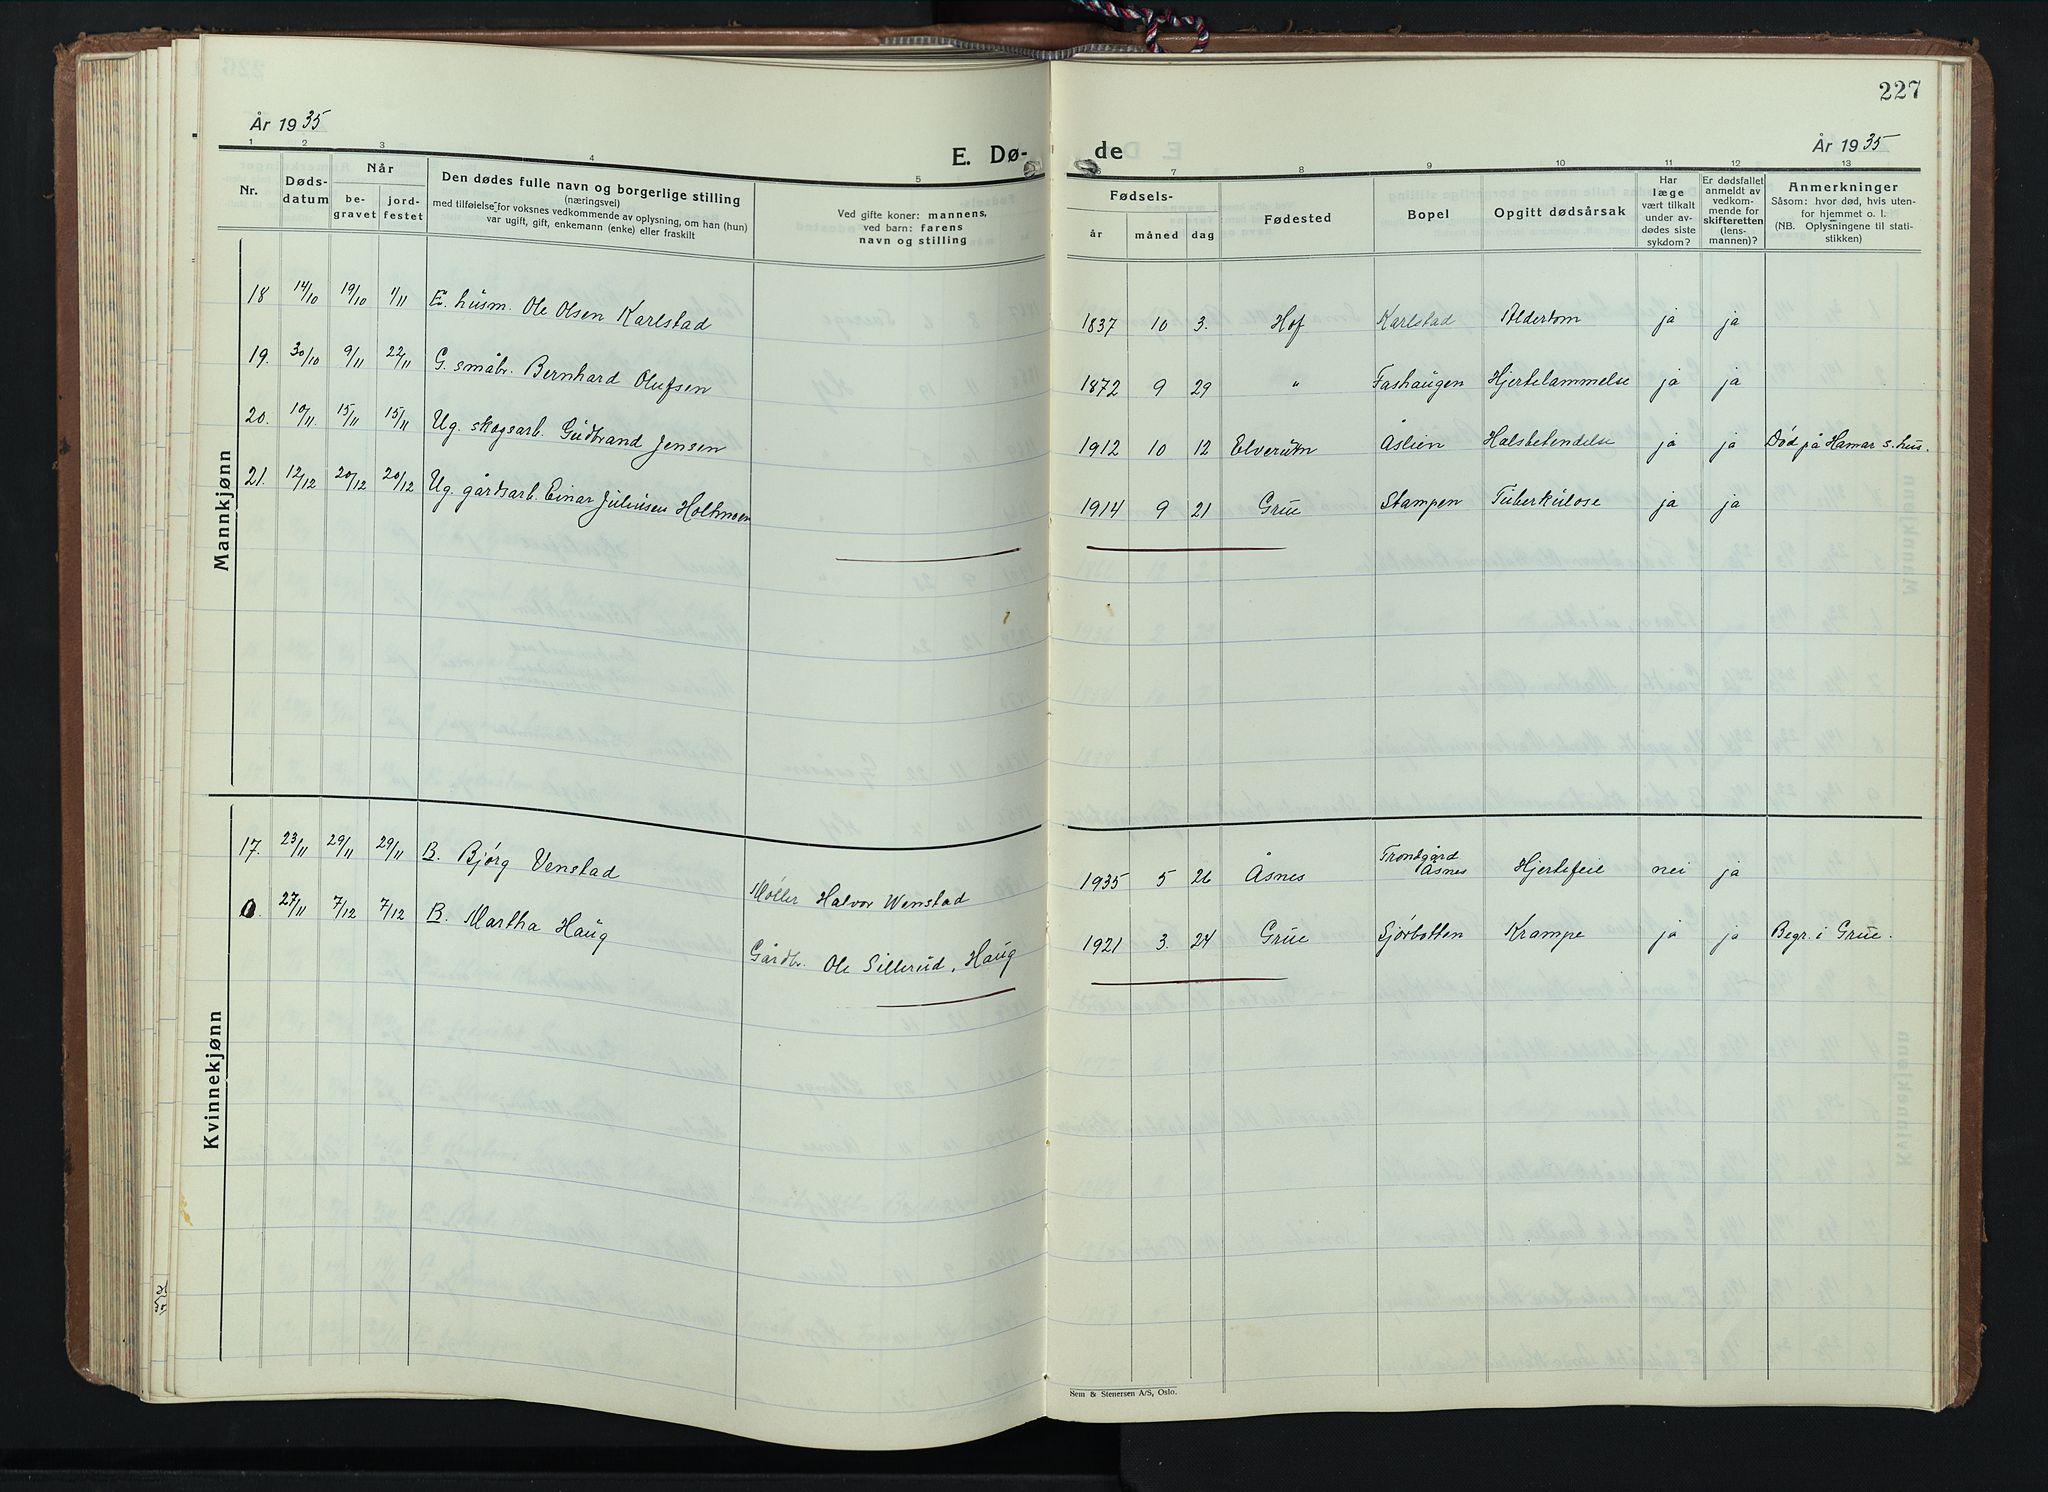 227
År 1935
E. Dø-
de
År 1935
1 2 3 4 5 7 8 9 10 11 12 13
Nr.
Døds-
datum
Når
be-
gravet
jord-
festet
Den dødes fulle navn og borgerlige stilling
(næringsvei)
med tilføielse for voksnes vedkommende av oplysning, om han (hun)
var ugift, gift, enkemann (enke) eller fraskilt
Ved gifte koner: mannens,
ved barn: farens
navn og stilling
Fødsels-
år måned dag
Fødested
Bopel
Opgitt dødsårsak
Har
læge
vært tilkalt
under av-
dødes siste
sykdom?
Er dødsfallet
anmeldt av
vedkom-
mende for
skifteretten
(lens-
mannen)?
Anmerkninger
Såsom: hvor død, hvis uten-
for hjemmet o. l.
(NB. Oplysningene til stati-
stikken)
Mannkjønn
18 14/10 19/10 1/11 E. husm. Ole Olsen Karlstad 1837 10 3. Hof Karlstad Alderdom ja ja
19. 30/10 9/11 22/11 G. småbr. Bernhard Olufsen 1872 9 29 " Fashaugen Hjertelammelse ja ja
20. 10/11. 15/11 15/11 Ug. skogsarb. Gudbrand Jensen 1912 10 12 Elverum Åslien Halsbetendelse ja ja Død på Hamar s.hus.
21. 12/12 20/12 20/12 Ug. gårdsarb. Einar Juliusen Holtmoen 1914 9 21 Grue Stampen Tuberkulose ja ja
Kvinnekjønn
17. 23/11 29/11 29/11 B. Bjørg Venstad Møller Halvor Wenstad 1935 5 26 Åsnes Trondgård Åsnes Hjertefeil nei ja
0. 27/11 7/12 7/12 B. Martha Haug Gårdbr. Ole Sillerud, Haug 1921 3. 24 Grue Sjørbotten Krampe ja ja Begr. i Grue.
Sem & Stenersen A/S, Oslo.